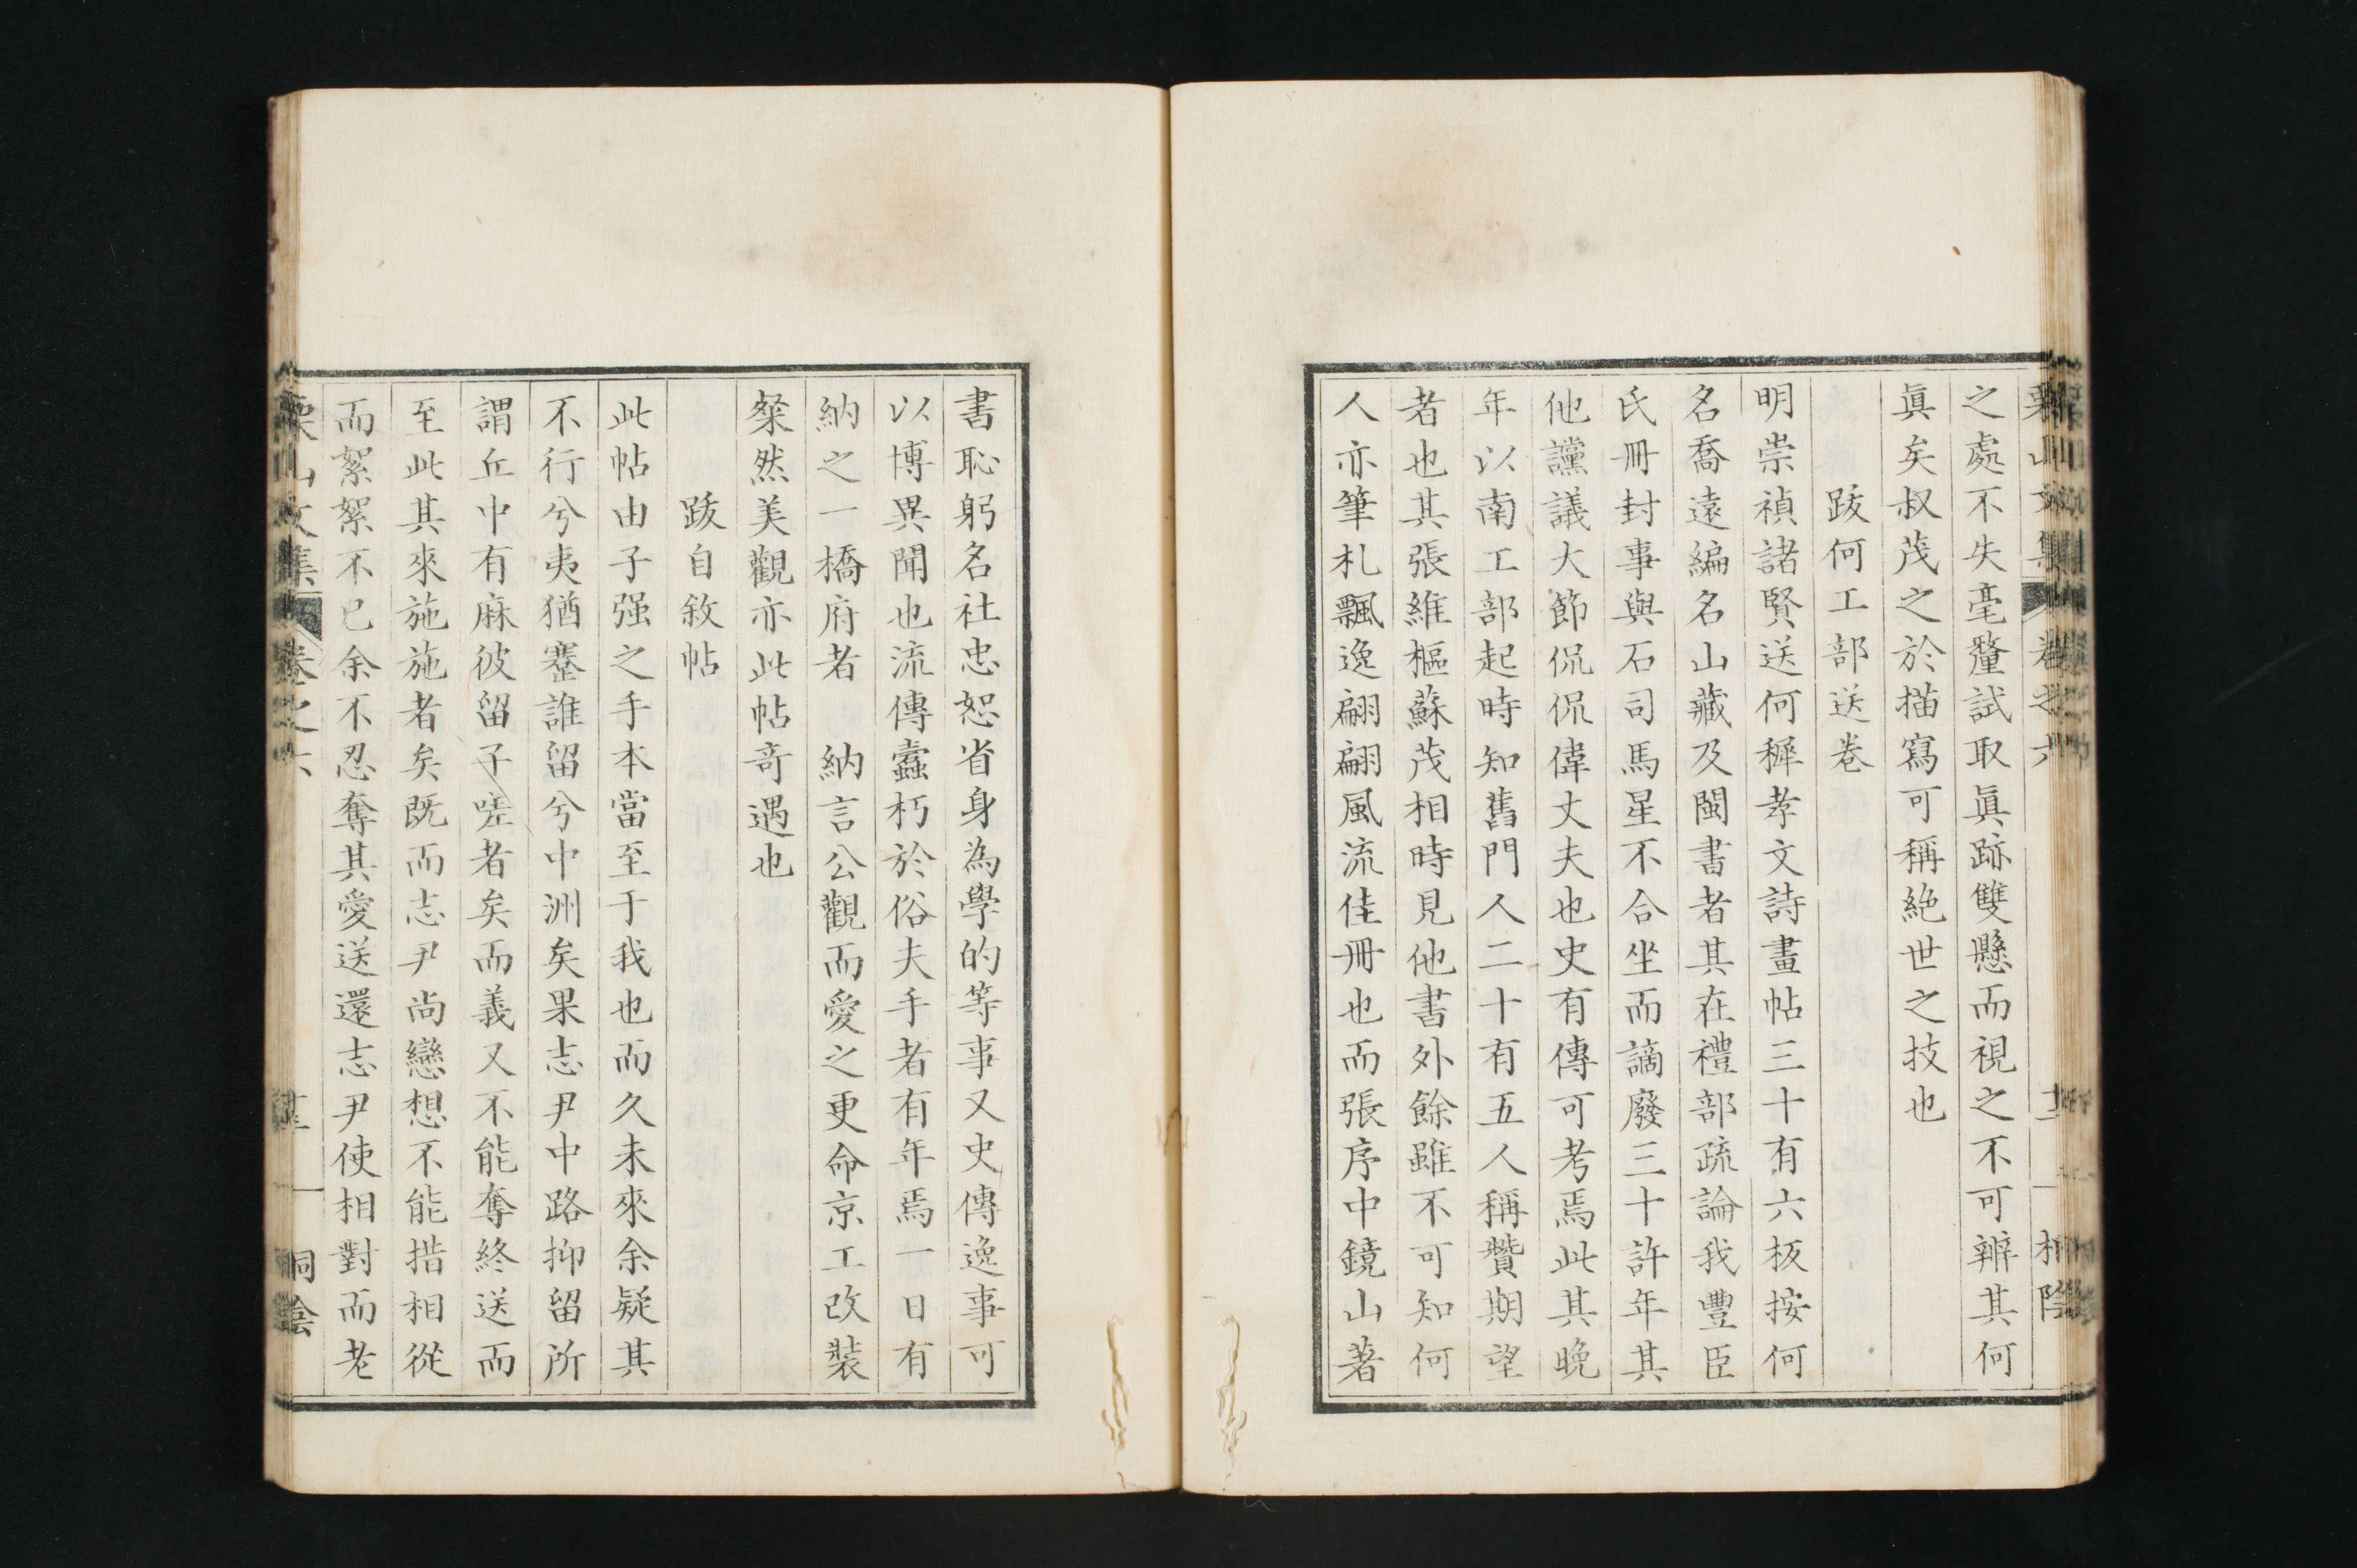 栗山文集 卷之六 十二 桐陰
之處不失毫釐試取眞跡雙懸而視之不可辨其何
眞矣叔茂之於描寫可稱絶世之技也
跋何工部送卷
明崇禎諸賢送何穉孝文詩畫帖三十有六板按何
名喬遠編名山藏及閩書者其在禮部疏論我豐臣
氏冊封事與石司馬星不合坐而謫廢三十許年其
他讜議大節侃侃偉丈夫也史有傳可考焉此其晩
年以南工部起時知舊門人二十有五人稱贊期望
者也其張維樞蘇茂相時見他書外餘雖不可知何
人亦筆札飄逸翩翩風流佳冊也而張序中鏡山著
書恥躬名社忠恕省身為學的等事又史傳逸事可
以博異聞也流傳蠧朽於俗夫手者有年焉一日有
納之一橋府者 納言公觀而愛之更命京工改裝
粲然美觀亦此帖竒遇也
跋自敘帖
此帖由子强之手本當至于我也而久未來余疑其
不行兮夷猶蹇誰留兮中洲矣果志尹中路抑留所
謂丘中有麻彼留子嗟者矣而義又不能奪終送而
至此其來施施者矣既而志尹尚戀想不能措相從
而絮絮不已余不忍奪其愛送還志尹使相對而老
栗山文集 卷之六 十三 桐陰